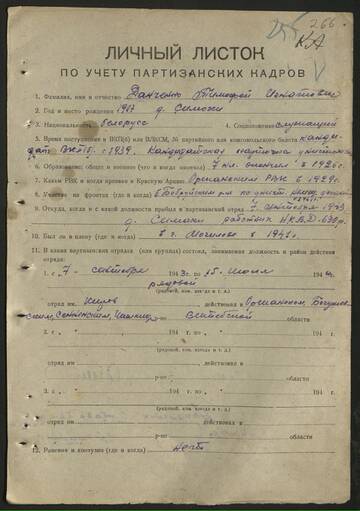 266
КА
ЛИЧНЫЙ ЛИСТОК
ПО УЧЕТУ ПАРТИЗАНСКИХ КАДРОВ
1. Фамилия, имя и отчество Данченко Тимофей Игнатович
2. Год и место рождения 1907 д.
3. Национальность белорусс 4. Соцположение служащий
5. Время поступления в ВКП(б) или ВЛКСМ, № партийного или комсомольского билета канди-
дат ВКП/б/ с 1939. Кандидатская карточка
6. Образование: общее и военное (что и когда окончил) 7 кл. окончил в 1926г.
7. Каким РВК и когда призван в Красную Армию Оршанским РВК в 1929г.
8. Участие на фронтах (где и когда)
9. Откуда, когда и с какой должности прибыл в партизанский отряд 7 сентября 1943
д. работник НКВД
10. Был ли в плену (где и когда) в г. Могилеве в 1941г.
11. В каких партизанских отрядах (или группах) состоял, занимаемая должность и район действия
отряда:
1. с 7 сентября 1943 г. по 5 июля 194 г.
рядовой
(рядовой, ком. взвода и т. д.)
отряд им. Кирова действовал в Оршанском, Богушев-
ском, Сенненском, Витебской области
2. с 194 г. по 194 г.
(рядовой, ком. взвода и т. д.)
отряд им. действовал в
р-не области
3. с 194 г. по 194 г.
(рядовой, ком. взвода и т. д.)
отряд им. действовал в
р-не области
12. Ранения и контузии (где и когда) нет